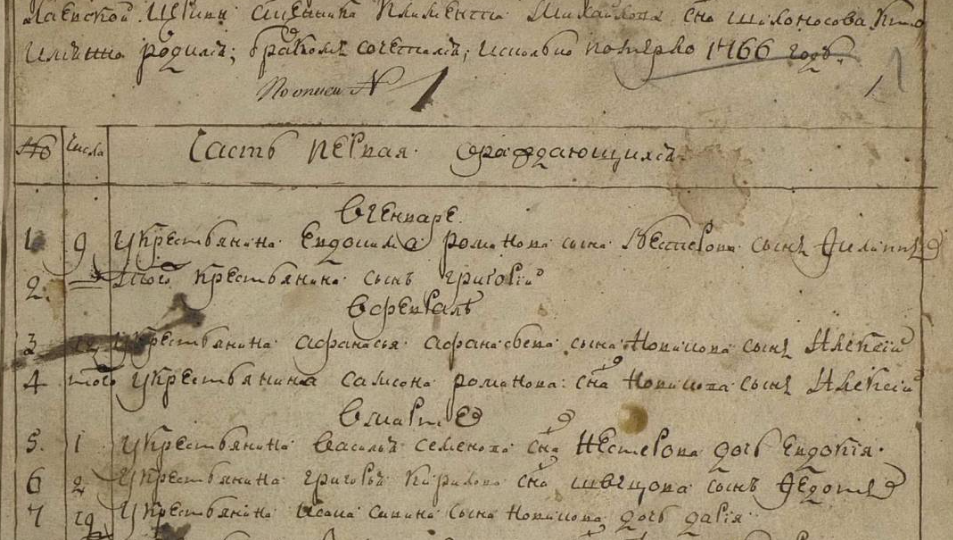 священника Климента Михайлова сна Шелоносова кто
имянно родилсъ; бракомъ сочеталсъ; и сколко померло 1766 годъ.
По описи № 1
№ Числа Часть первая о раждающихся
В генваре
1 9 У крестьянина Евдокима романова сына Нестерова сынъ Филиппъ
2. того крестьянина сынъ григорий
В феврале
3 12 У крестьянина афанасья афанасьева сына Новикова сынъ Алексий
4 того У крестьянина самсона романова сна Новикова сынъ Алексий
В марте
5. 1 У крестьянина василья семенова сна Нестерова дочь Евдокия.
6 2 У крестьянина григорья кирилова сна швецова сынъ Федотъ
7 19 У крестьянина исака савина сына Новикова дочь дария